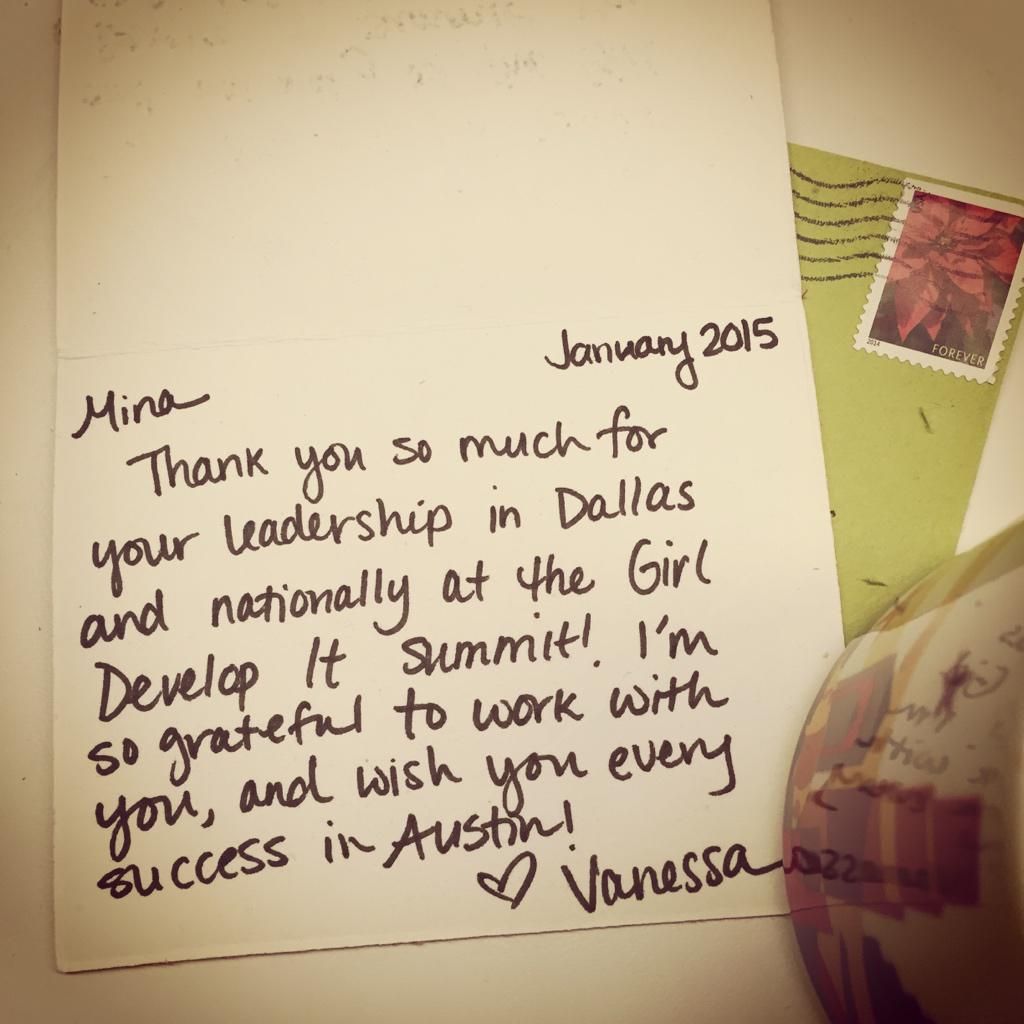 January 2015
Mina
Thank you so much for
your leadership in Dallas
and nationally at the Girl
Develop It Summit! I'm
so grateful to work with
you, and wish you every
success in Austin!
♡ Vanessa
2014
FOREVER